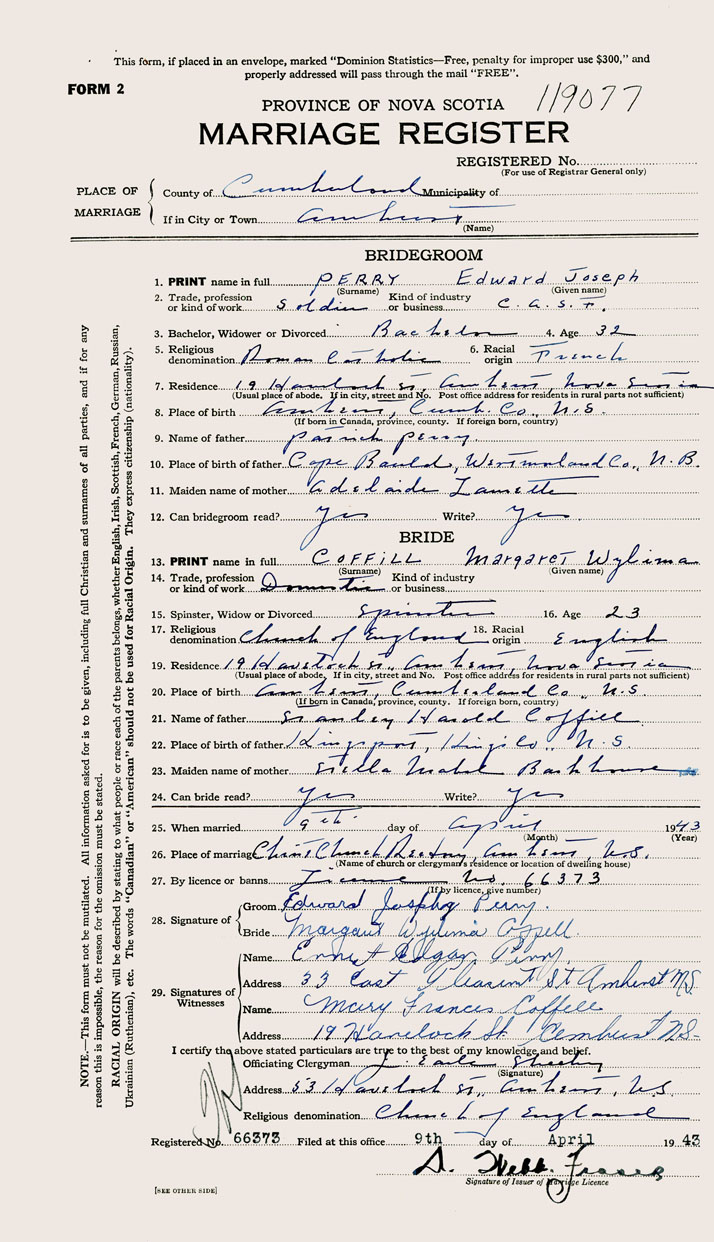 This form, if placed in an envelope, marked "Dominion Statistics—Free, penalty for improper use $300," and
properly addressed will pass through the mail "FREE".
FORM 2
PROVINCE OF NOVA SCOTIA 119077
MARRIAGE REGISTER
REGISTERED No.
(For use of Registrar General only)
PLACE OF MARRIAGE
County of Cumberland Municipality of
If in City or Town Amherst
(Name)
BRIDEGROOM
1. PRINT name in full PERRY Edward Joseph
(Surname) (Given name)
2. Trade, profession or kind of work Soldier Kind of industry or business C.A.S.F.
3. Bachelor, Widower or Divorced Bachelor 4. Age 32
5. Religious denomination Roman Catholic 6. Racial origin French
7. Residence 19 Havelock St, Amherst, Nova Scotia
(Usual place of abode. If in city, street and No. Post office address for residents in rural parts not sufficient)
8. Place of birth Amherst, Cumb. Co., N.S.
(If born in Canada, province, county. If foreign born, country)
9. Name of father Patrick Perry
10. Place of birth of father Cape Bauld, Westmorland Co., N.B.
11. Maiden name of mother Adelaide
12. Can bridegroom read? yes Write? yes
BRIDE
13. PRINT name in full COFFILL Margaret Wylima
(Surname) (Given name)
14. Trade, profession or kind of work Domestic Kind of industry or business
15. Spinster, Widow or Divorced Spinster 16. Age 23
17. Religious denomination Church of England 18. Racial origin English
19. Residence 19 Havelock St., Amherst, Nova Scotia
(Usual place of abode, If in city, street and No. Post office address for residents in rural parts not sufficient)
20. Place of birth Amherst, Cumberland Co., N.S.
(If born in Canada, province, county. If foreign born, country)
21. Name of father Stanley Harold Coffill
22. Place of birth of father Kingsport, Kings Co., N.S.
23. Maiden name of mother Stella Mabel
24. Can bride read? yes Write? yes
25. When married 9th day of April 1943
(Month) (Year)
26. Place of marriage Christ Church Rectory, Amherst, N.S.
(Name of church or clergyman's residence or location of dwelling house)
27. By licence or banns License No. 66373
(If by licence, give number)
28. Signature of
Groom Edward Joseph Perry.
Bride Margaret Wylima Coffill.
29. Signatures of Witnesses
Name Ernest Edgar Perry
Address 33 East Pleasant St Amherst N.S.
Name Mary Frances Coffill
Address 19 Havelock St Amherst N.S.
I certify the above stated particulars are true to the best of my knowledge and belief.
Officiating Clergyman J. Earle
(Signature)
Address 53 Havelock St., Amherst, N.S.
Religious denomination Church of England
Registered No. 66373 Filed at this office 9th day of April 1943
Signature of Issuer of Marriage Licence
[SEE OTHER SIDE]
NOTE.—This form must not be mutilated. All information asked for is to be given, including full Christian and surnames of all parties, and if for any
reason this is impossible, the reason for the omission must be stated.
RACIAL ORIGIN will be decribed by stating to what people or race each of the parents belongs, whether English, Irish, Scottish, French, German, Russian,
Ukrainian (Ruthenian), etc. The words "Canadian" or "American" should not be used for Racial Origin. They express citizenship (nationality).